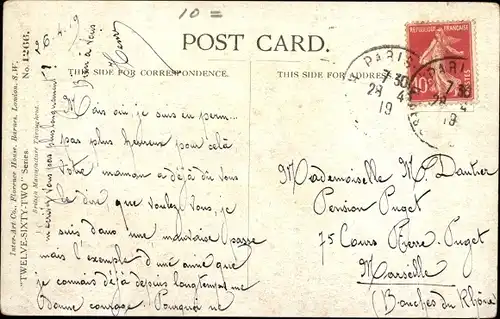 10 =
POST CARD.
THIS SIDE FOR CORRESPONDENCE.
THIS SIDE FOR
26.4.19
Bien à vous
Inter-Art Co., Florence House, Barnes, London, S.W.
"TWELVE-SIXTY-TWO" Series. No. 1266.
British Manufacture Throughout.
RÉPUBLIQUE FRANÇAISE
10c
PARIS
7-30
28 4
19
PARI
7-30
28 4
19
Mais oui je suis en perm...
pas plus heureux pour celà
Votre maman a déjà dû vous
le dire, que voulez-vous, je
suis dans une mauvaise passe
mais l'exemple d'une amie que
je connais déjà depuis longtemps me
donne courage. Pourquoi ne
vous plus longuement?
Mademoiselle M. Dautier
Pension Puget
75 Cours Pierre-Puget
Marseille
(Bouches du Rhône)